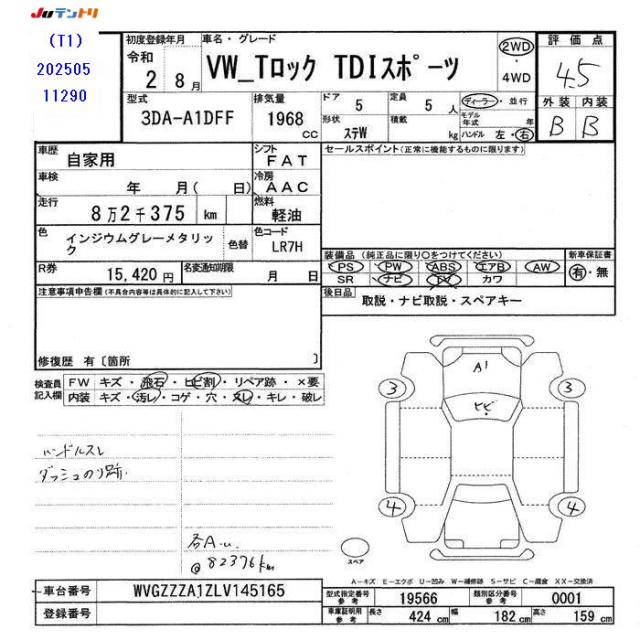 JUテントリ
(T1)
202505
11290
初度登録年月
令和
2 8月
車名・グレード
VW_Tロック TDIスポーツ
2WD
・
4WD
評価点
4.5
外装 内装
B B
型式
3DA-A1DFF
排気量
1968
cc
ドア 5
定員 5 人
形状 ステW
積載 kg
ディーラー・並行
モデル年式 年
ハンドル 左・右
車歴 自家用
シフト FAT
セールスポイント(正常に機能するものに限ります)
車検 年 月( 日)
冷房 AAC
走行 8万2千375 km
燃料 軽油
色 インジウムグレーメタリック
色替
色コード LR7H
R券 15,420円
名変通知期限 月 日
装備品(純正品に限り○をつけてください)
PS ・ PW ・ ABS ・ エアB ・ AW
SR ・ ナビ ・ TV ・ カワ
新車保証書
有・無
後日品 取説・ナビ取説・スペアキー
注意事項申告欄(不具合内容等は具体的に記入して下さい)
修復歴 有〔箇所 〕
検査員記入欄
FW キズ・飛石・ヒビ割・リペア跡・×要
内装 キズ・汚レ・コゲ・穴・スレ・キレ・破レ
ハンドルスレ
ダッシュのリ跡.
各A-u
@82376km
A1
ヒビ
3
3
4
4
スペア
A-キズ E-エクボ U-凹み W-補修跡 S-サビ C-腐食 XX-交換済
車台番号 WVGZZZA1ZLV145165
登録番号
型式指定番号 参考 19566
類別区分番号 参考 0001
車庫証明用 参考 長さ 424 cm 幅 182 cm 高さ 159 cm